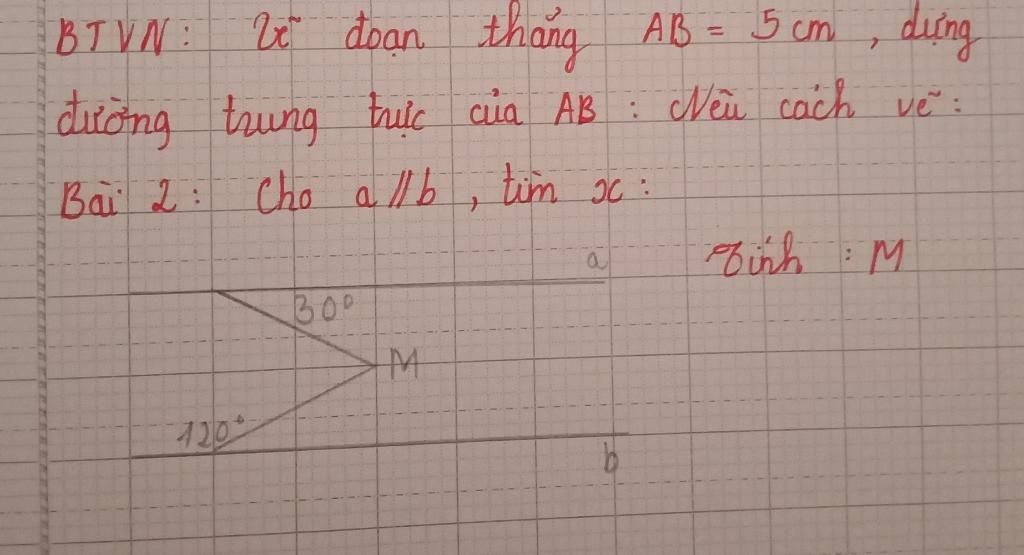 BTVN: Vẽ đoạn thẳng AB = 5 cm, dựng
đường trung trực của AB: Nêu cách vẽ:
Bài 2: Cho a // b, tìm x:
a Tính: M
30°
M
120°
b